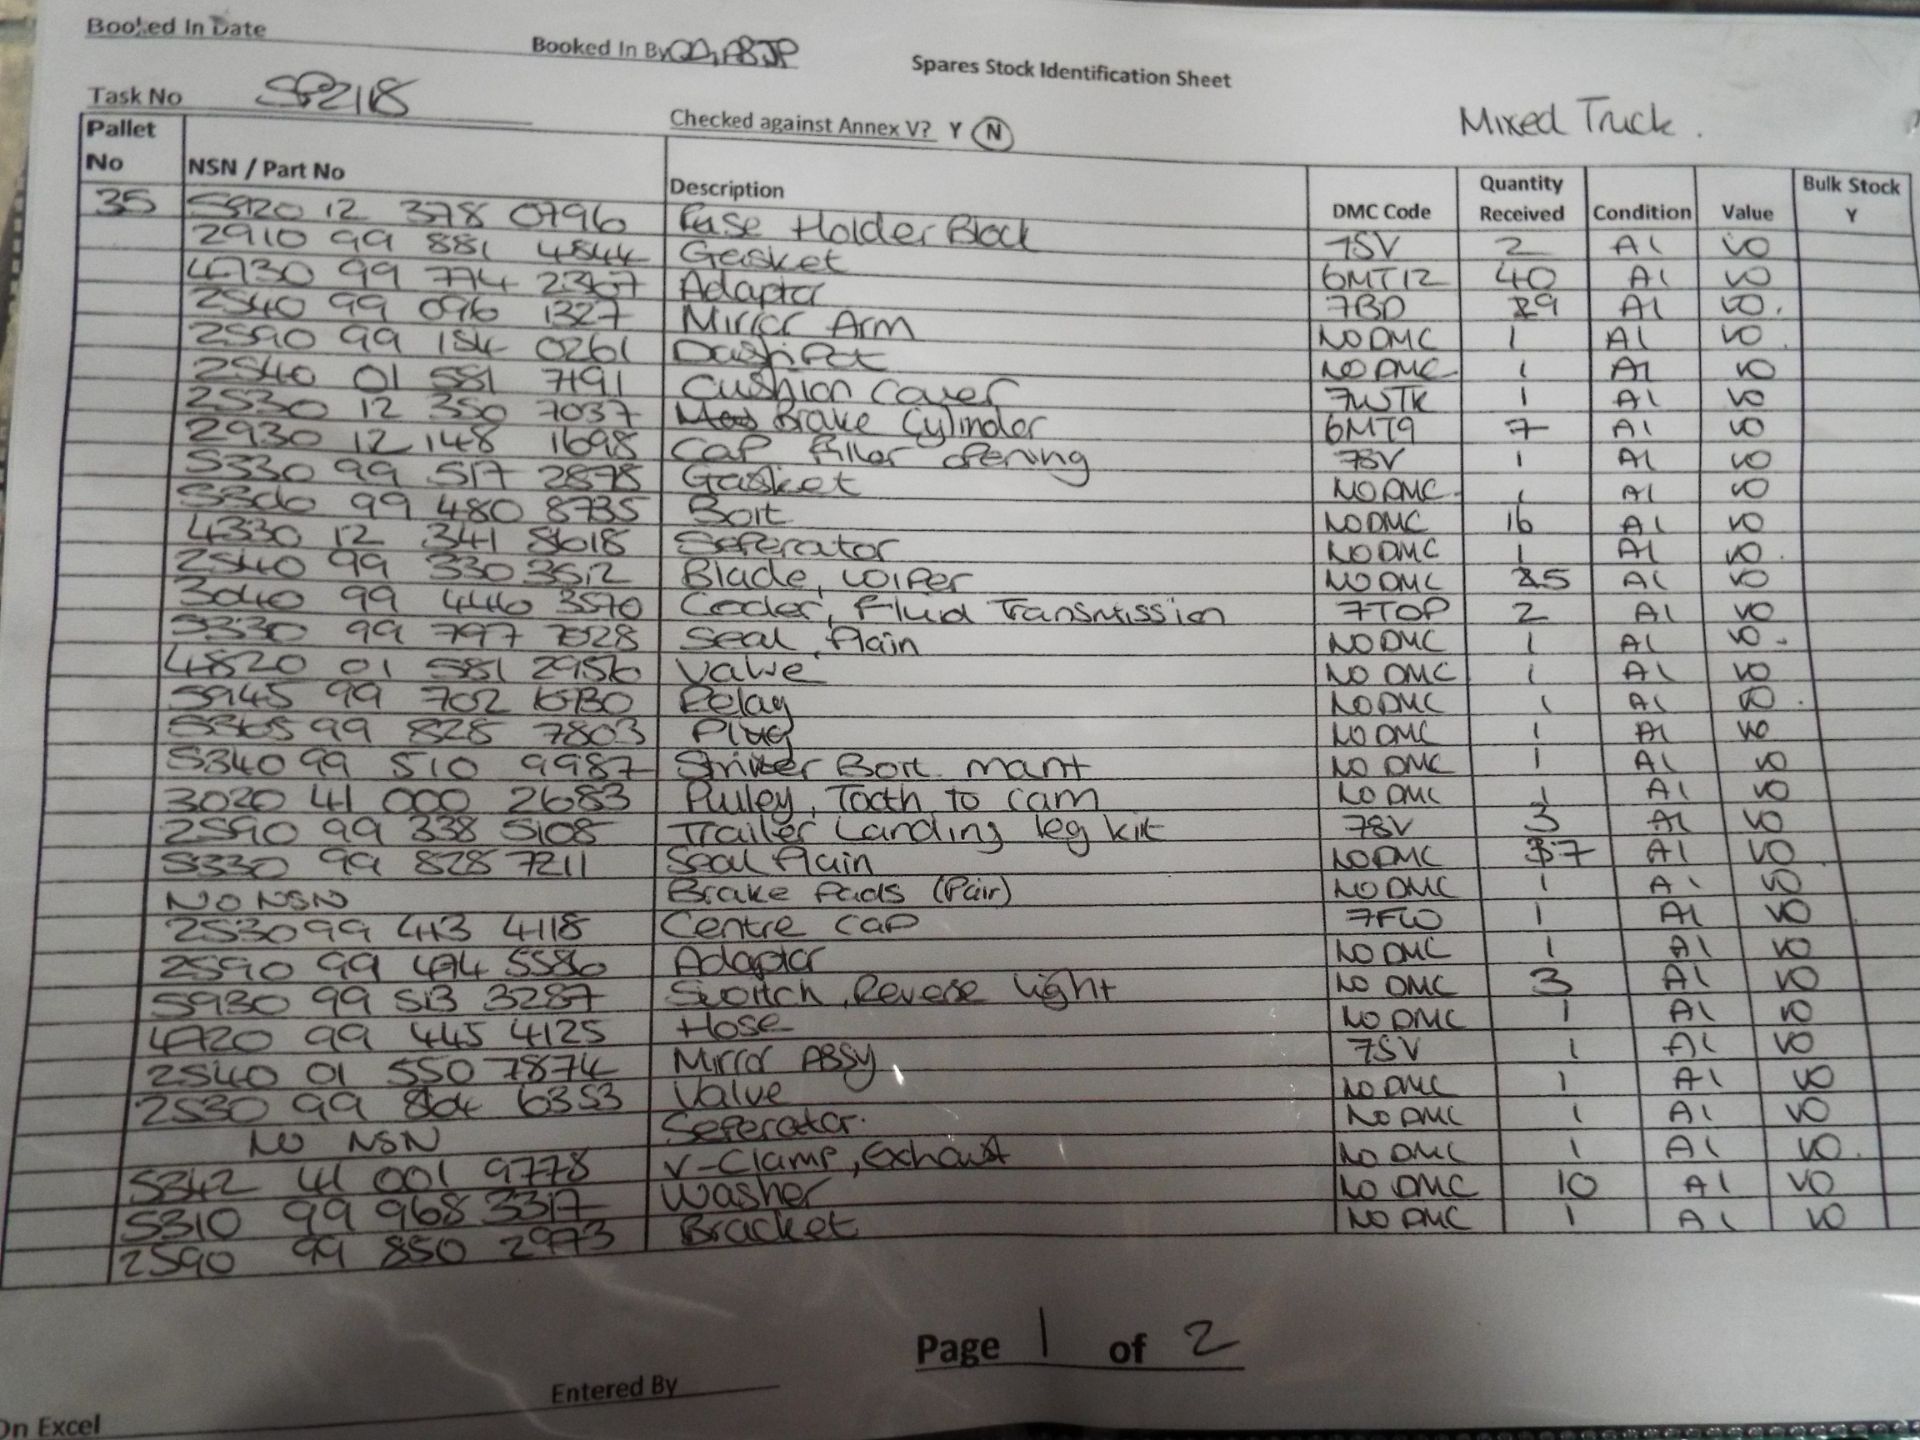 Booked In Date
Booked In By
Spares Stock Identification Sheet
Task No SP2118
Checked against Annex V? Y N
Mixed Truck.
Pallet No NSN / Part No Description DMC Code Quantity Received Condition Value Bulk Stock Y
35 5920 12 378 0796 Fuse Holder Block 7SV 2 A1 VO
2910 99 881 4844 Gasket 6MT12 40 A1 VO
4730 99 774 2367 Adaptor 7BD 29 A1 VO.
2540 99 096 1327 Mirror Arm NO DMC 1 A1 VO
2590 99 184 0261 DashPot NO DMC 1 A1 VO
2540 01 581 7191 Cushion Cover 7WTK 1 A1 VO
2530 12 350 7037 Brake Cylinder 6MT9 7 A1 VO
2930 12 148 1698 Cap filler opening 78V 1 A1 VO
5330 99 517 2878 Gasket NO DMC 1 A1 VO
5306 99 480 8735 Bolt NO DMC 16 A1 VO
4330 12 341 8618 Seperator NO DMC 1 A1 VO.
2540 99 330 3512 Blade, wiper NO DMC 25 A1 VO
3040 99 446 3570 Cooler, Fluid Transmission 7TOP 2 A1 VO
5330 99 797 7028 Seal, Plain NO DMC 1 A1 VO.
4820 01 581 2956 Valve NO DMC 1 A1 VO
5945 99 702 Relay NO DMC 1 A1 VO.
5365 99 828 7803 Plug NO DMC 1 A1 VO
5340 99 510 9987 Striker Bolt mant NO DMC 1 A1 VO
3020 41 000 2683 Pulley, Tooth to cam NO DMC 1 A1 VO
2590 99 338 5108 Trailer Landing leg kit 78V 3 A1 VO
5330 99 828 7211 Seal Plain NO DMC 37 A1 VO
NO NSN Brake Pads (Pair) NO DMC 1 A1 VO
2530 99 413 4118 Centre Cap 7FWO 1 A1 VO
2590 99 474 5586 Adaptor NO DMC 1 A1 VO
5930 99 513 3287 Switch, Reverse light NO DMC 3 A1 VO
4720 99 445 4125 Hose NO DMC 1 A1 VO
2540 01 550 7874 Mirror ASSY 7SV 1 A1 VO
2530 99 864 6353 Valve NO DMC 1 A1 VO
NO NSN Seperator. NO DMC 1 A1 VO
5342 41 001 9778 V-Clamp, Exhaust NO DMC 1 A1 VO.
5310 99 968 3317 Washer NO DMC 10 A1 VO
2590 99 850 2973 Bracket NO DMC 1 A1 VO
Page 1 of 2
Entered By
On Excel